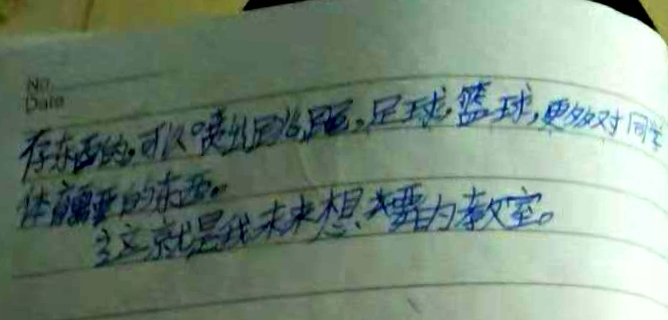 No.
Date
存东西的,可以喷出足够,足球,篮球,更多对同学
体育需要的东西。
这就是我未来想要的教室。